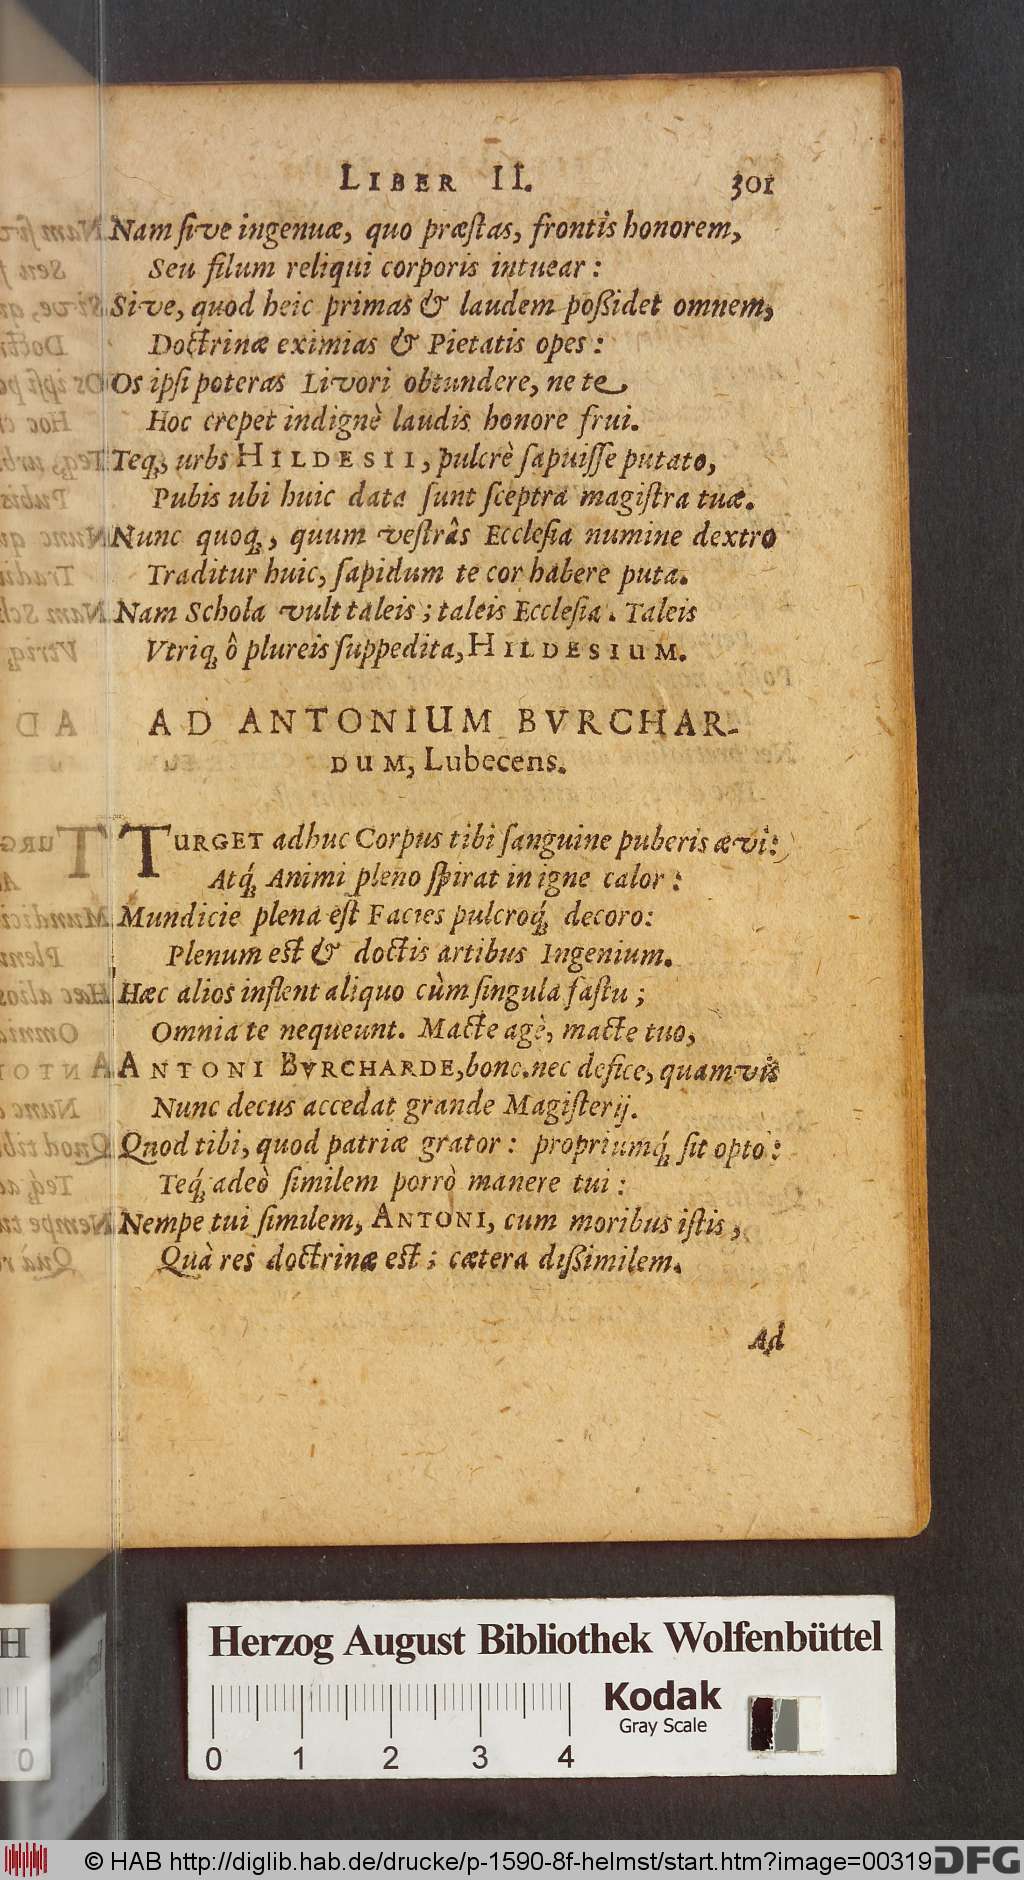 LIBER II. 301
Nam sive ingenuæ, quo præstas, frontis honorem,
Seu filum reliqui corporis intuear:
Sive, quod heic primas & laudem poßidet omnem,
Doctrinæ eximias & Pietatis opes:
Os ipsi poteras Livori obtundere, ne te
Hoc crepet indignè laudis honore frui.
Teq́; urbs HILDESII, pulcrè sapuisse putato,
Pubis ubi huic data sunt sceptra magistra tuæ.
Nunc quoq;, quum vestrâs Ecclesia numine dextro
Traditur huic, sapidum te cor habere puta.
Nam Schola vult taleis; taleis Ecclesia. Taleis
Vtriq; ô plureis suppedita, HILDESIUM.
AD ANTONIUM BVRCHAR-
DUM, Lubecens.
TURGET adhuc Corpus tibi sanguine puberis ævi:
Atq́; Animi pleno spirat in igne calor:
Mundicie plena est Facies pulcroq́; decoro:
Plenum est & doctis artibus Ingenium.
Hæc alios inflent aliquo cùm singula fastu;
Omnia te nequeunt. Macte agè, macte tuo,
ANTONI BVRCHARDE, bono: nec defice, quamvis
Nunc decus accedat grande Magisterij.
Quod tibi, quod patriæ grator: propriumq́; sit opto:
Teq́; adeò similem porrò manere tui:
Nempe tui similem, ANTONI, cum moribus istis,
Quà res doctrinæ est; cætera dißimilem.
Ad
Herzog August Bibliothek Wolfenbüttel
Kodak
Gray Scale
0 1 2 3 4
H
0
© HAB http://diglib.hab.de/drucke/p-1590-8f-helmst/start.htm?image=00319
DFG